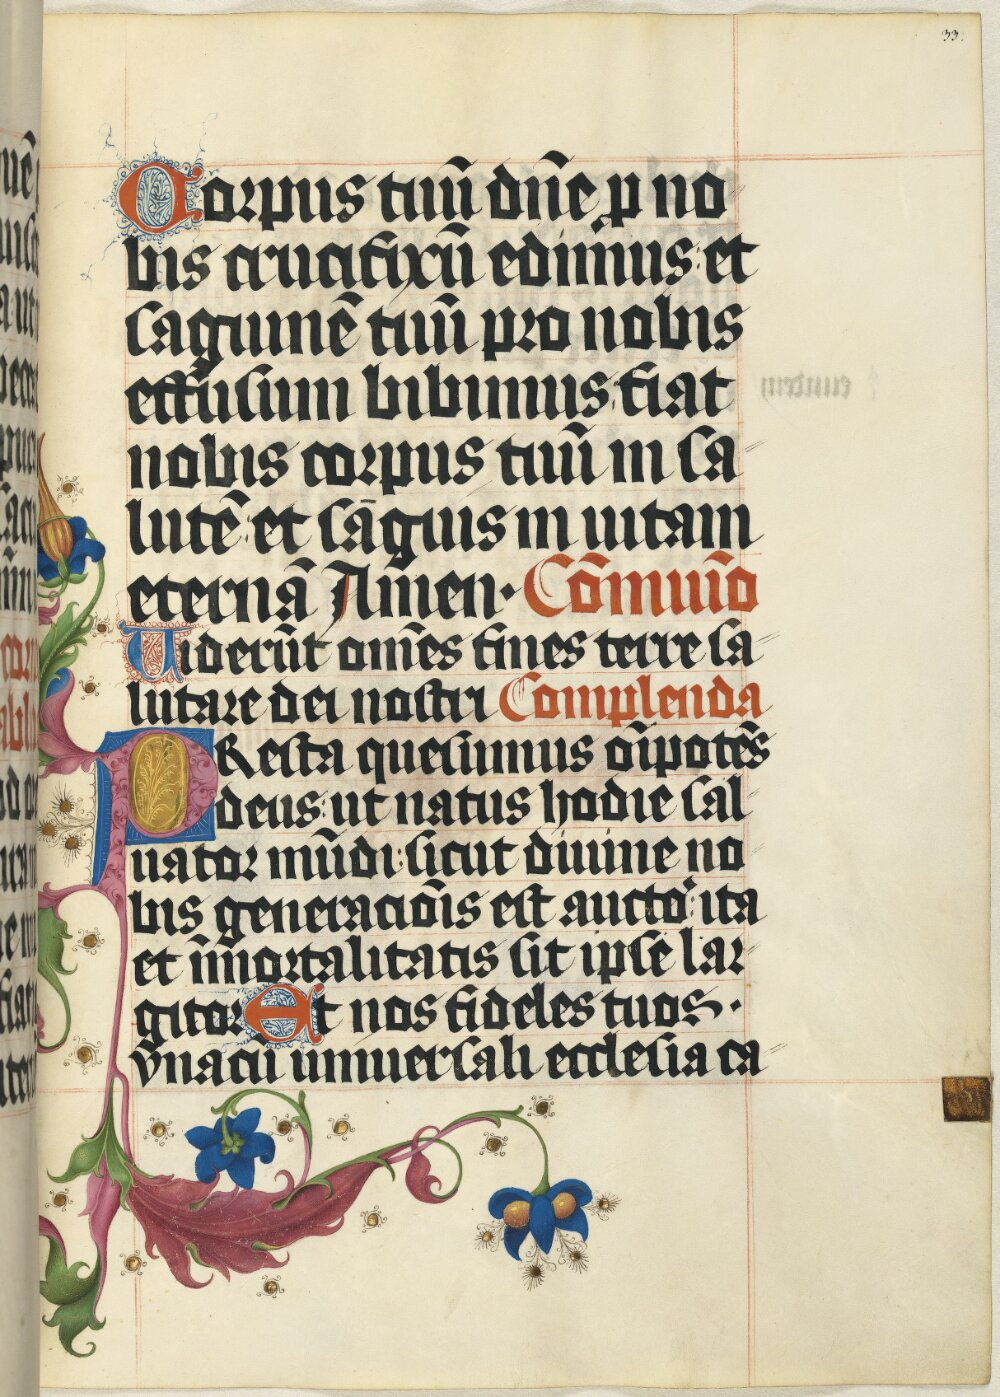 33.
Corpus tuū dn̄e ꝑ no
bis crucifixū edimus: et
saguinē tuū pro nobis
effusum bibimus: fiat
nobis corpus tuū in sa
lutē: et sāguis in uitam
eternā Amen· Cōmunio
Uiderūt om̄es fines terre sa
lutare dei nostri Complenda
PResta quesumus oīpotēs
deus: ut natus hodie sal
uator mūdi: sicut diuine no
bis generacōis est auctor ita
et īmortalitatis sit ipse lar
gitor Et nos fideles tuos·
vnacū uniuersali ecclesia ca